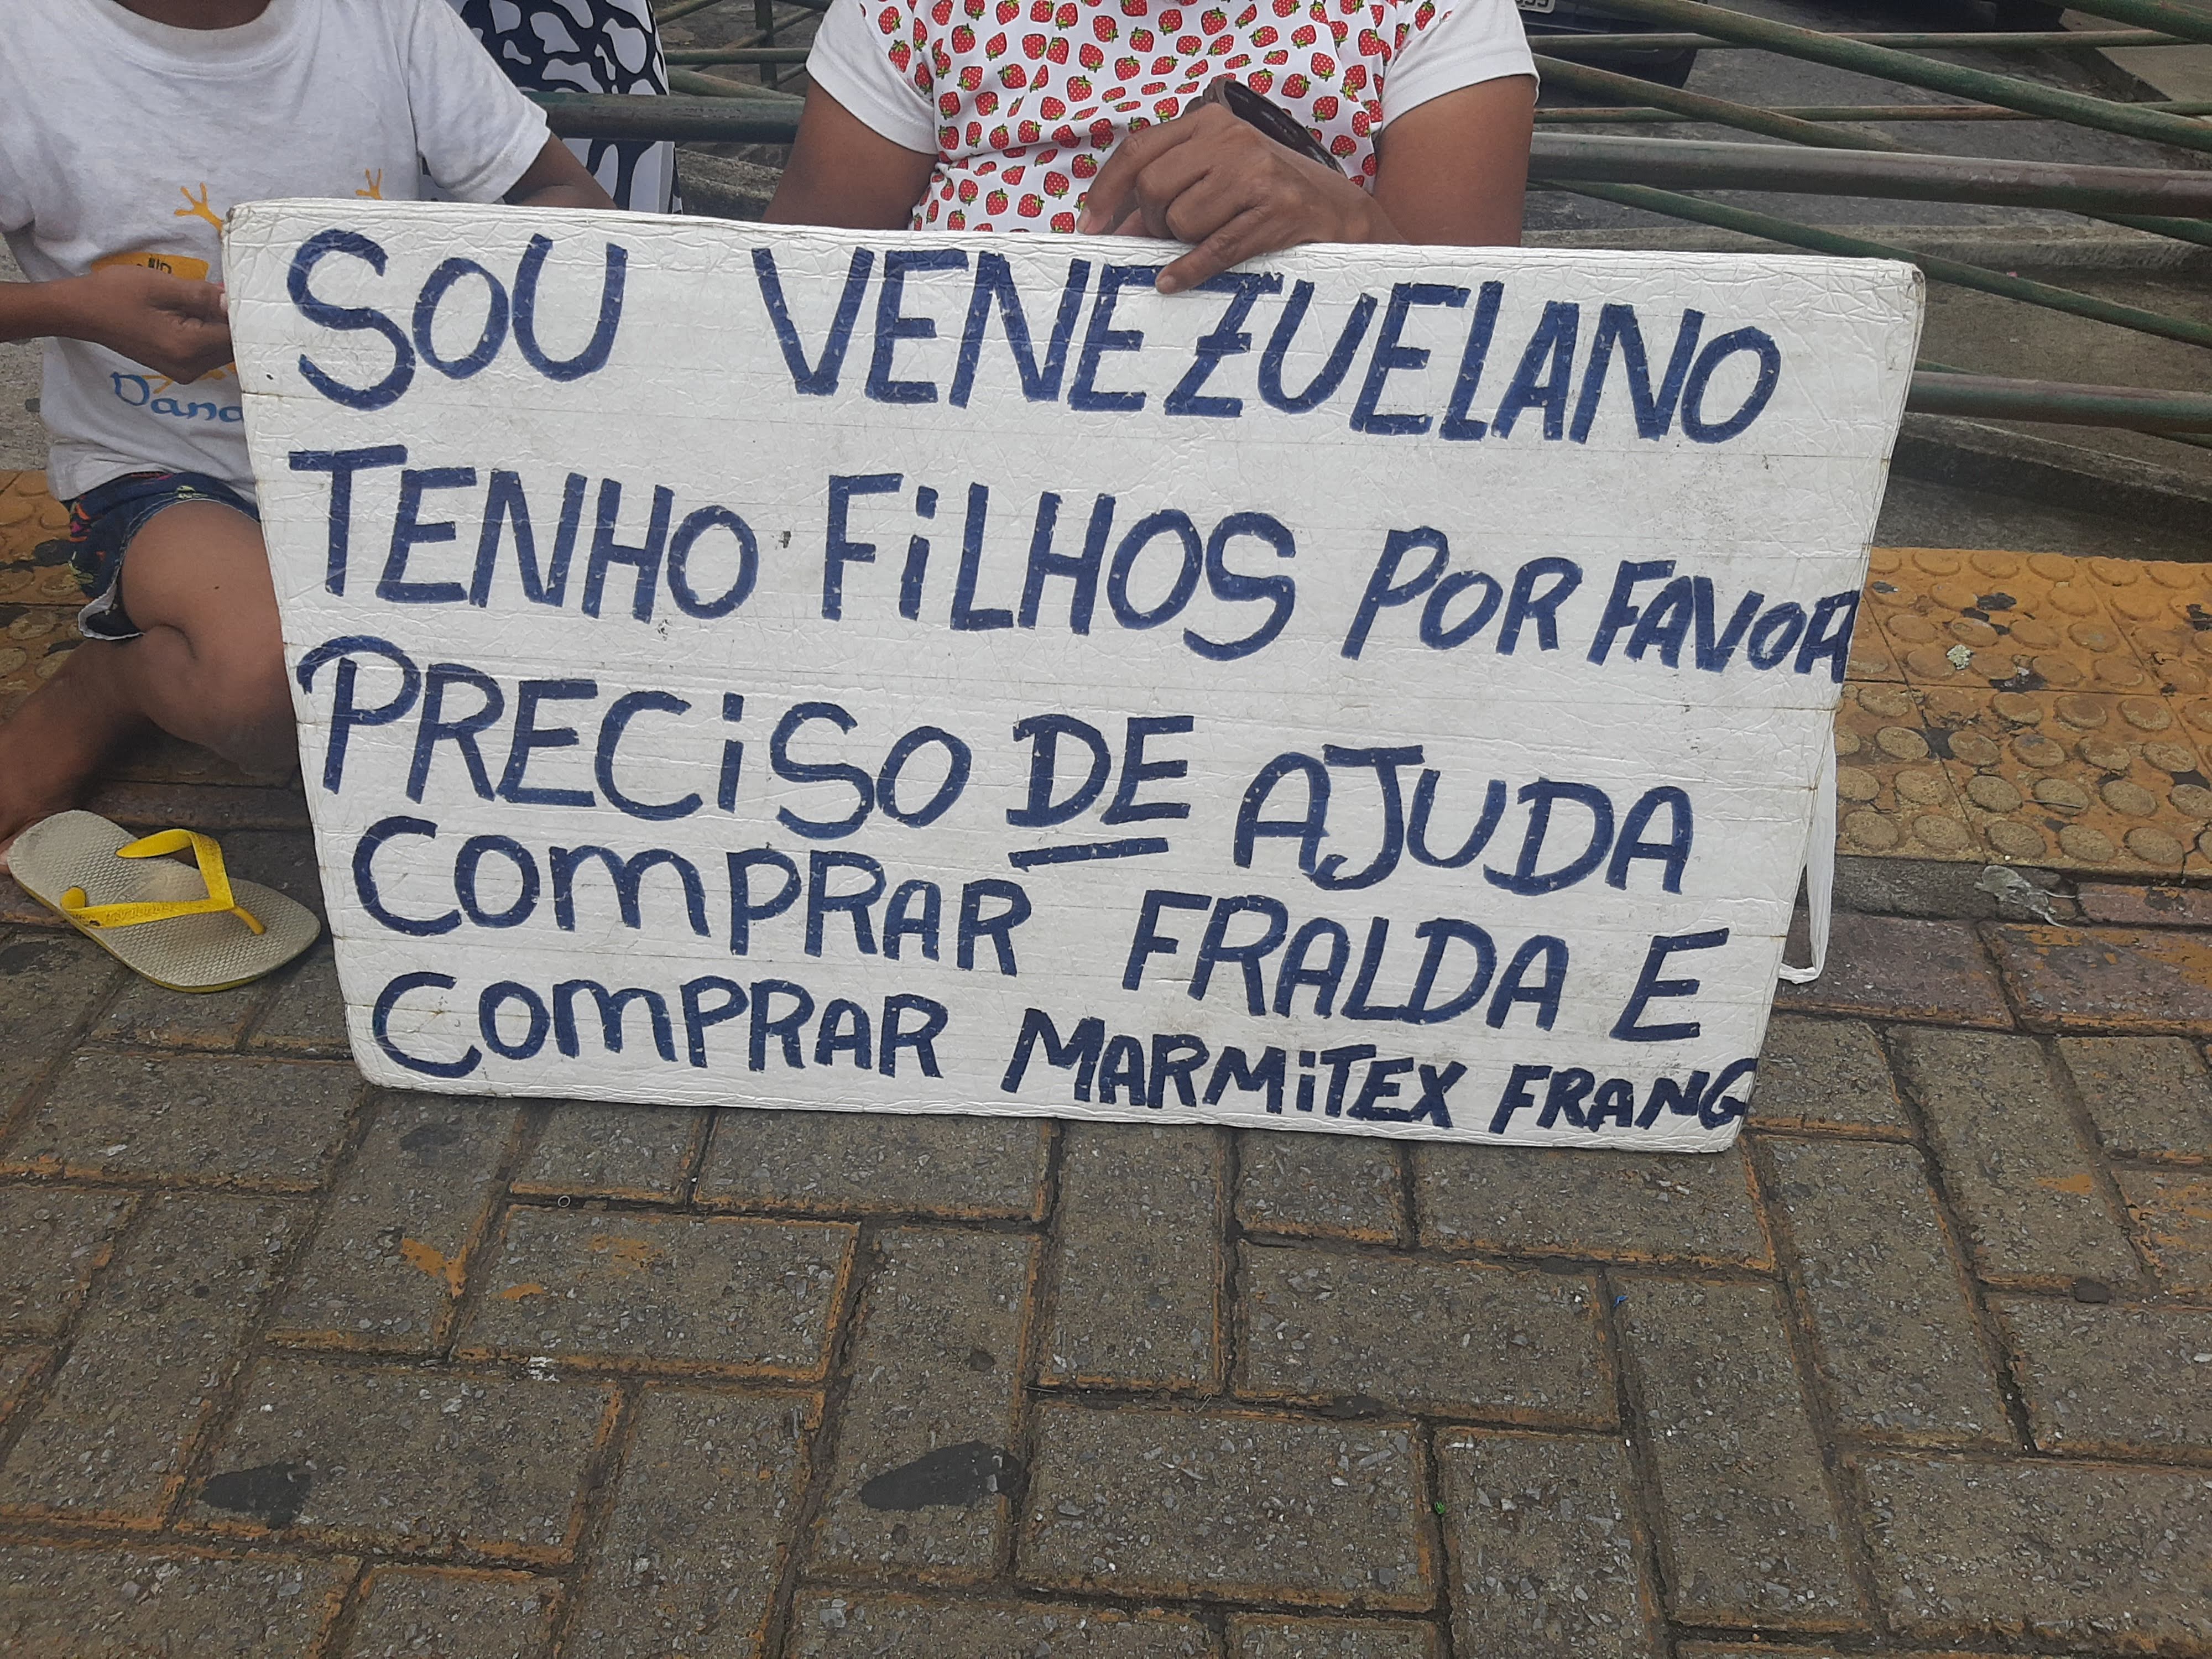 SOU VENEZUELANO
TENHO FiLHOS POR FAVOR
PRECiSO DE AJUDA
COMPRAR FRALDA E
COMPRAR MARMiTEX FRANG